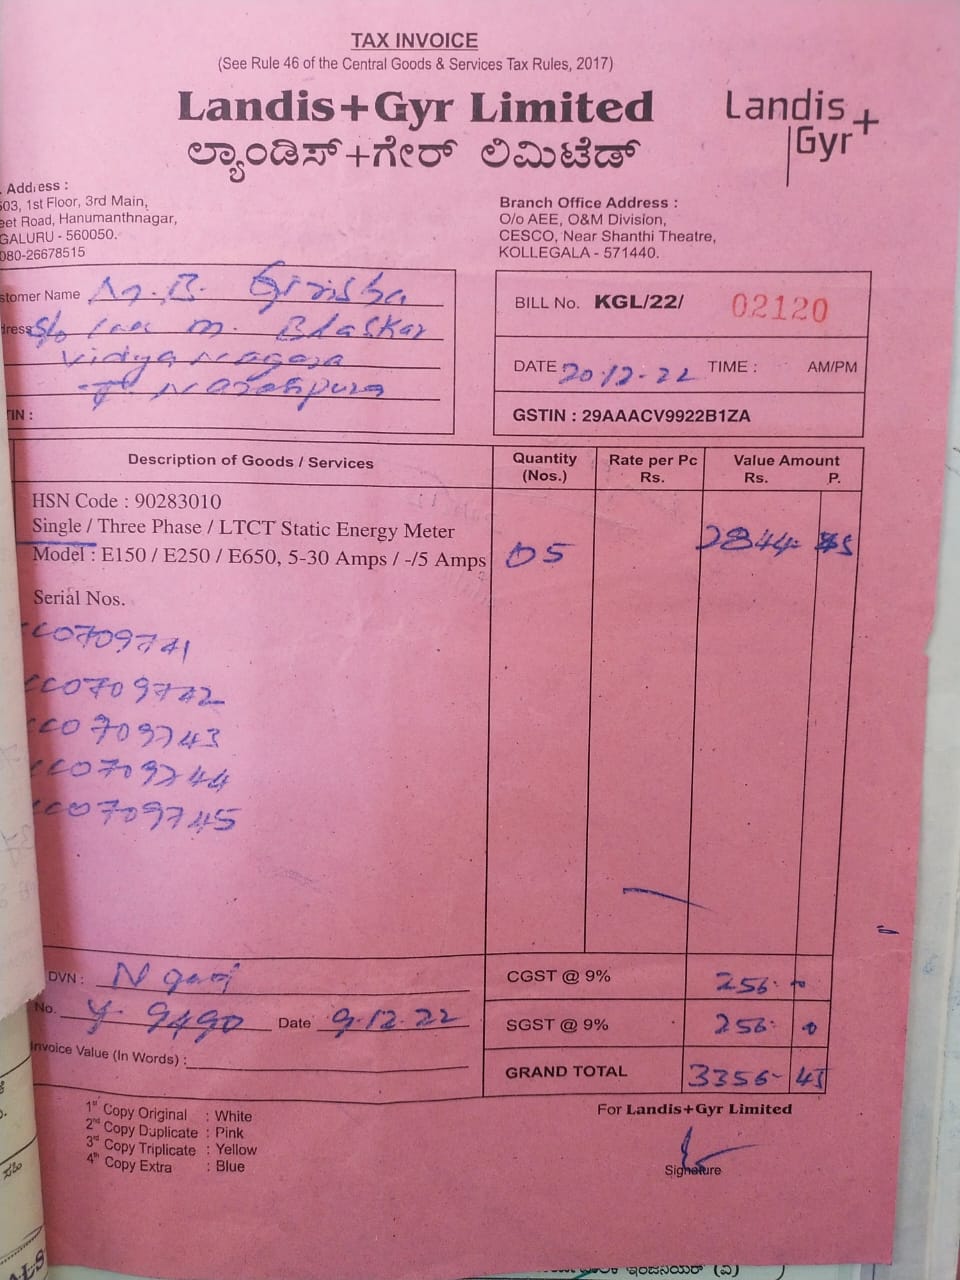 TAX INVOICE
(See Rule 46 of the Central Goods & Services Tax Rules, 2017)
Landis+Gyr Limited
ಲ್ಯಾಂಡಿಸ್+ಗೇರ್ ಲಿಮಿಟೆಡ್
Landis
Gyr+
Address :
503, 1st Floor, 3rd Main,
eet Road, Hanumanthnagar,
GALURU - 560050.
080-26678515
Branch Office Address :
O/o AEE, O&M Division,
CESCO, Near Shanthi Theatre,
KOLLEGALA - 571440.
stomer Name B. Girisha
dress S/o Late M. Bhaskar
Vidya Nagara
T. Narasipura
TIN :
BILL No. KGL/22/ 02120
DATE 20.12.22 TIME : AM/PM
GSTIN : 29AAACV9922B1ZA
Description of Goods / Services
Quantity (Nos.)
Rate per Pc Rs.
Value Amount Rs. P.
HSN Code : 90283010
Single / Three Phase / LTCT Static Energy Meter
Model : E150 / E250 / E650, 5-30 Amps / -/5 Amps 05 2844-
Serial Nos.
CC0709741
CC0709742
CC0709743
CC0709744
CC0709745
DVN :
No. 9490 Date 9.12.22
Invoice Value (In Words) :
CGST @ 9% 256-
SGST @ 9% 256-
GRAND TOTAL 3356- 45
1st Copy Original : White
2nd Copy Duplicate : Pink
3rd Copy Triplicate : Yellow
4th Copy Extra : Blue
For Landis+Gyr Limited
Signature
ALS